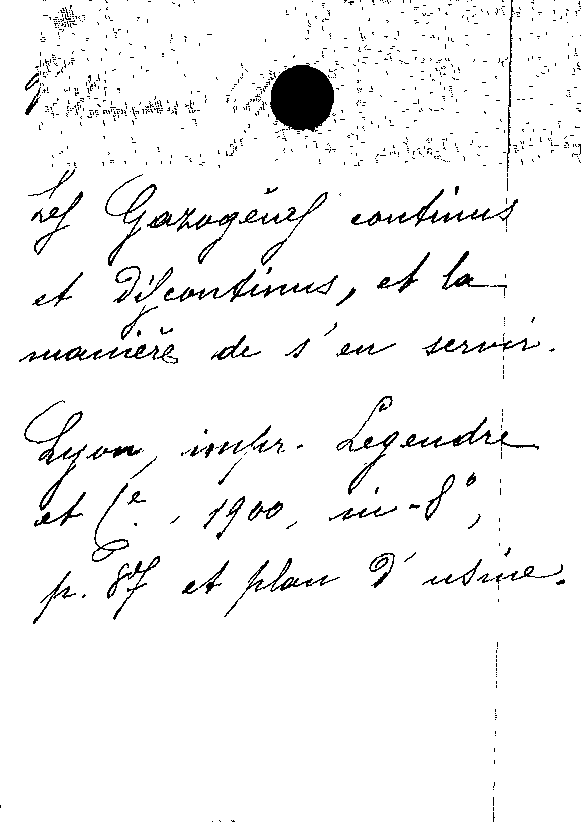 Les Gazogènes continus
et discontinus, et la
manière de s'en servir.
Lyon, impr. Legendre
et Cie., 1900, in-8°,
p. 87 et plan d'usine.